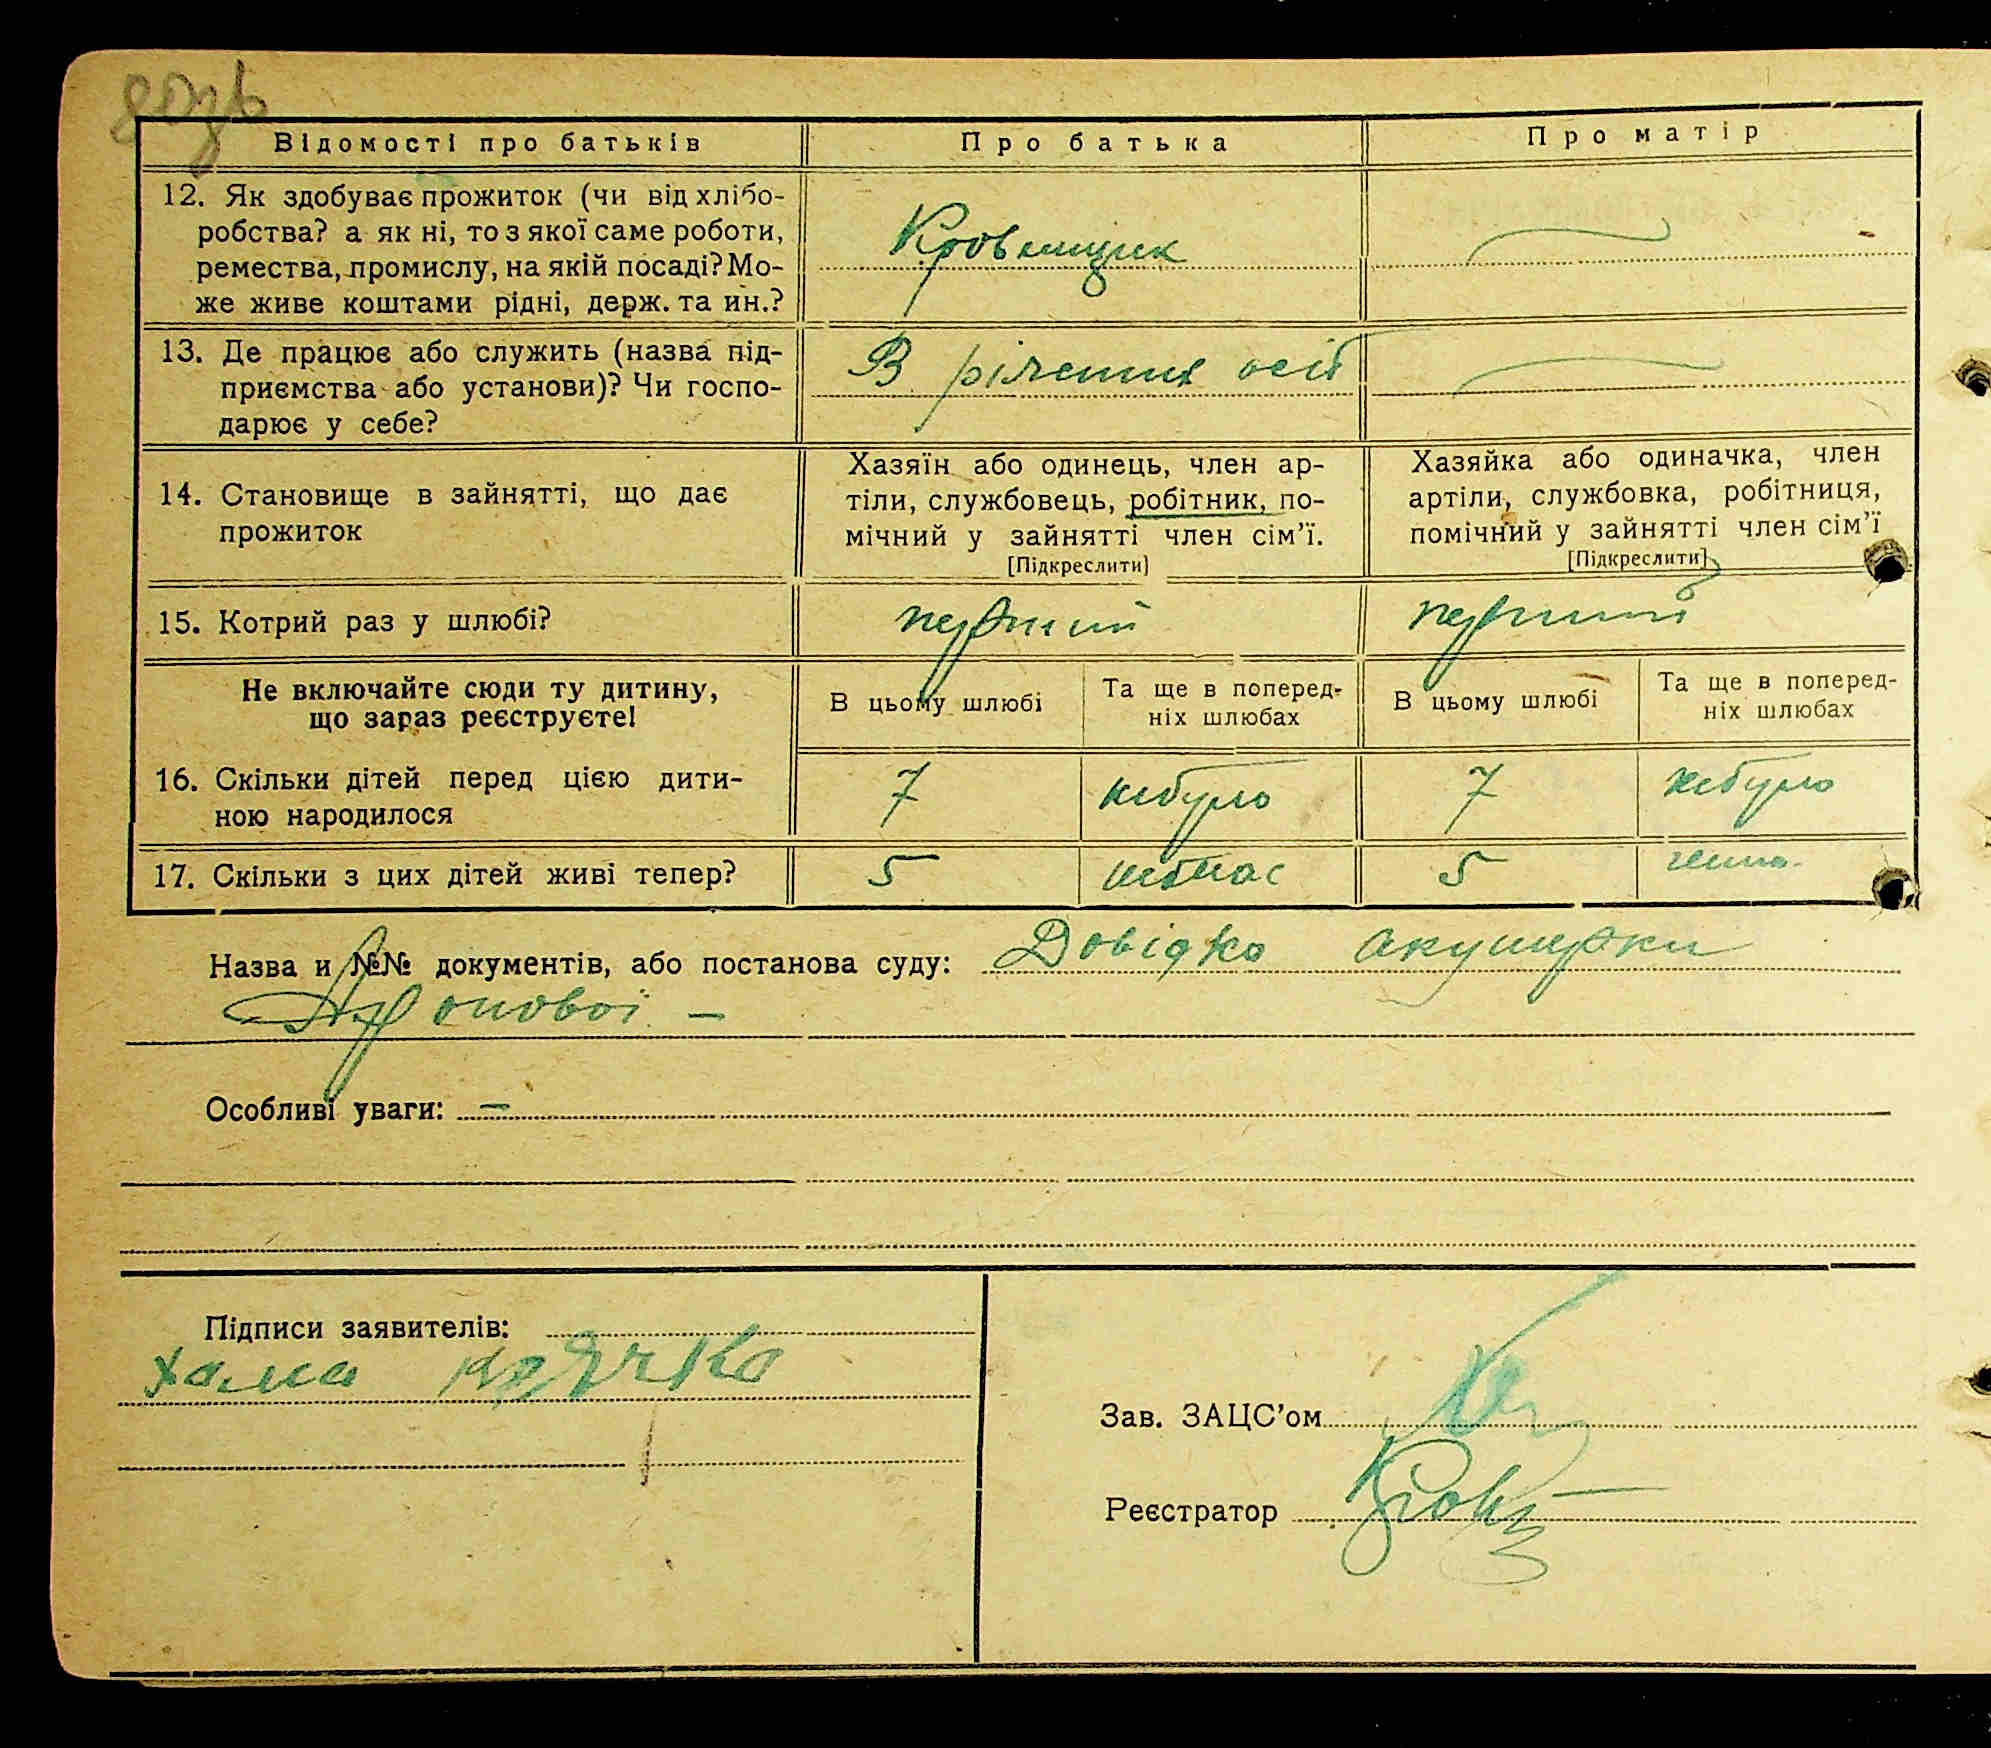 Відомості про батьків
Про батька
Про матір
12. Як здобуває прожиток (чи від хлібо-
робства? а як ні, то з якої саме роботи,
ремества, промислу, на якій посаді? Мо-
же живе коштами рідні, держ. та ин.?
Кровельщик
13. Де працює або служить (назва під-
приємства або установи)? Чи госпо-
дарює у себе?
В різемних осіб
14. Становище в зайнятті, що дає
прожиток
Хазяїн або одинець, член ар-
тіли, службовець, робітник, по-
мічний у зайнятті член сім'ї.
[Підкреслити]
Хазяйка або одиначка, член
артіли, службовка, робітниця,
помічний у зайнятті член сім'ї
[Підкреслити]
15. Котрий раз у шлюбі?
первий
первий
Не включайте сюди ту дитину,
що зараз реєструєте!
В цьому шлюбі
Та ще в поперед-
ніх шлюбах
В цьому шлюбі
Та ще в поперед-
ніх шлюбах
16. Скільки дітей перед цією дити-
ною народилося
7
небуло
7
небуло
17. Скільки з цих дітей живі тепер?
5
5
нема
Назва и №№ документів, або постанова суду: Довідка акушерки
Особливі уваги: —
Підписи заявителів:
хама
Зав. ЗАЦС'ом
Реєстратор